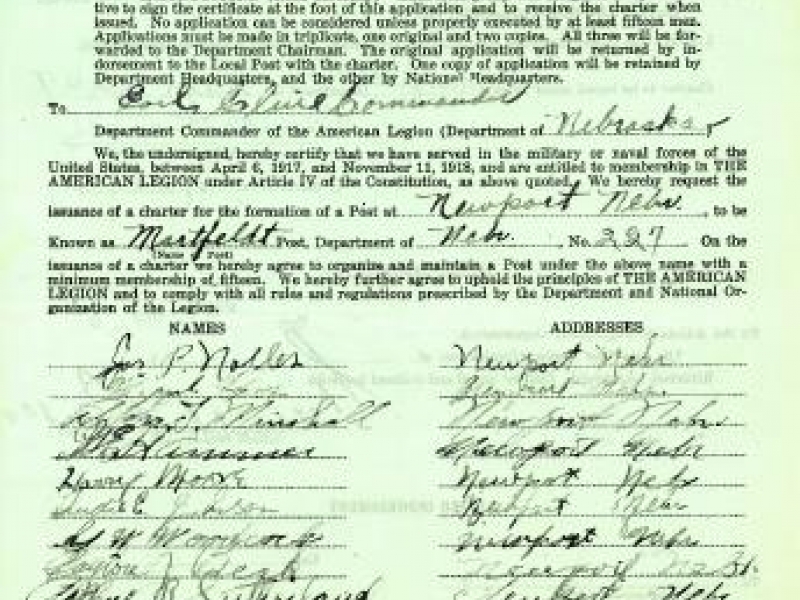 tive to sign the certificate at the foot of this application and to receive the charter when
issued. No application can be considered unless properly executed by at least fifteen men.
Applications must be made in triplicate, one original and two copies. All three will be for-
warded to the Department Chairman. The original application will be returned by in-
dorsement to the Local Post with the charter. One copy of application will be retained by
Department Headquarters, and the other by National Headquarters.
To Commander
Department Commander of the American Legion (Department of Nebraska
We, the undersigned, hereby certify that we have served in the military or naval forces of the
United States, between April 6, 1917, and November 11, 1918, and are entitled to membership in THE
AMERICAN LEGION under Article IV of the Constitution, as above quoted. We hereby request the
issuance of a charter for the formation of a Post at Newport Nebr. , to be
Known as Martfeldt Post, Department of Neb. No. 327 On the
(Name Post)
issuance of a charter we hereby agree to organize and maintain a Post under the above name with a
minimum membership of fifteen. We hereby further agree to uphold the principles of THE AMERICAN
LEGION and to comply with all rules and regulations prescribed by the Department and National Or-
ganization of the Legion.
NAMES ADDRESSES
Jos P. Noller Newport Nebr
Newport Nebr.
Minshall Newport Nebr
Hammer Newport Nebr
Harry Moore Newport Nebr
Nebr
W Newport Nebr
Newport
Newport Nebr